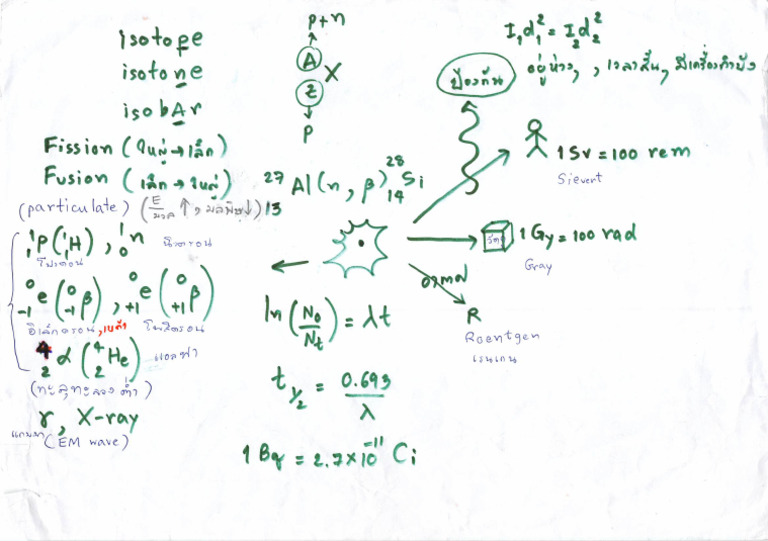 isotope
isotone
isobAr
Fission (ใหญ่→เล็ก)
Fusion (เล็ก→ใหญ่)
(particulate) (E/มวล ↑, มลพิษ↓)
¹₁P(¹₁H), ¹₀n นิวตรอน
โปรตอน
⁰₋₁e(⁰₋₁β), ⁰₊₁e(⁰₊₁β)
อิเล็กตรอน, เบต้า โพสิตรอน
⁴₂α(⁴₂He) แอลฟา
(ทะลุทะลวงต่ำ)
γ, X-ray
แกมมา (EM wave)
P+n
A
X
Z
P
²⁷₁₃Al(n, β)²⁸₁₄Si
ln(N₀/Nₜ) = λt
t₁/₂ = 0.693/λ
1 Bq = 2.7×10⁻¹¹ Ci
I₁d₁² = I₂d₂²
ป้องกัน
อยู่ห่างๆ, เวลาสั้นๆ, มีเครื่องกำบัง
1 Sv = 100 rem
Sievert
วัตถุ
1 Gy = 100 rad
Gray
อากาศ
R
Roentgen
เรินเกน